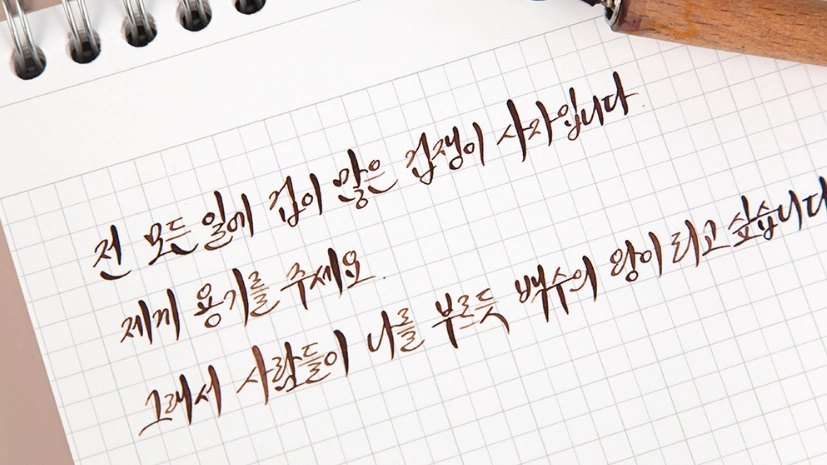 전 모든 일에 겁이 많은 겁쟁이 사자입니다.
제게 용기를 주세요.
그래서 사람들이 나를 부르듯 백수의 왕이 되고 싶습니다